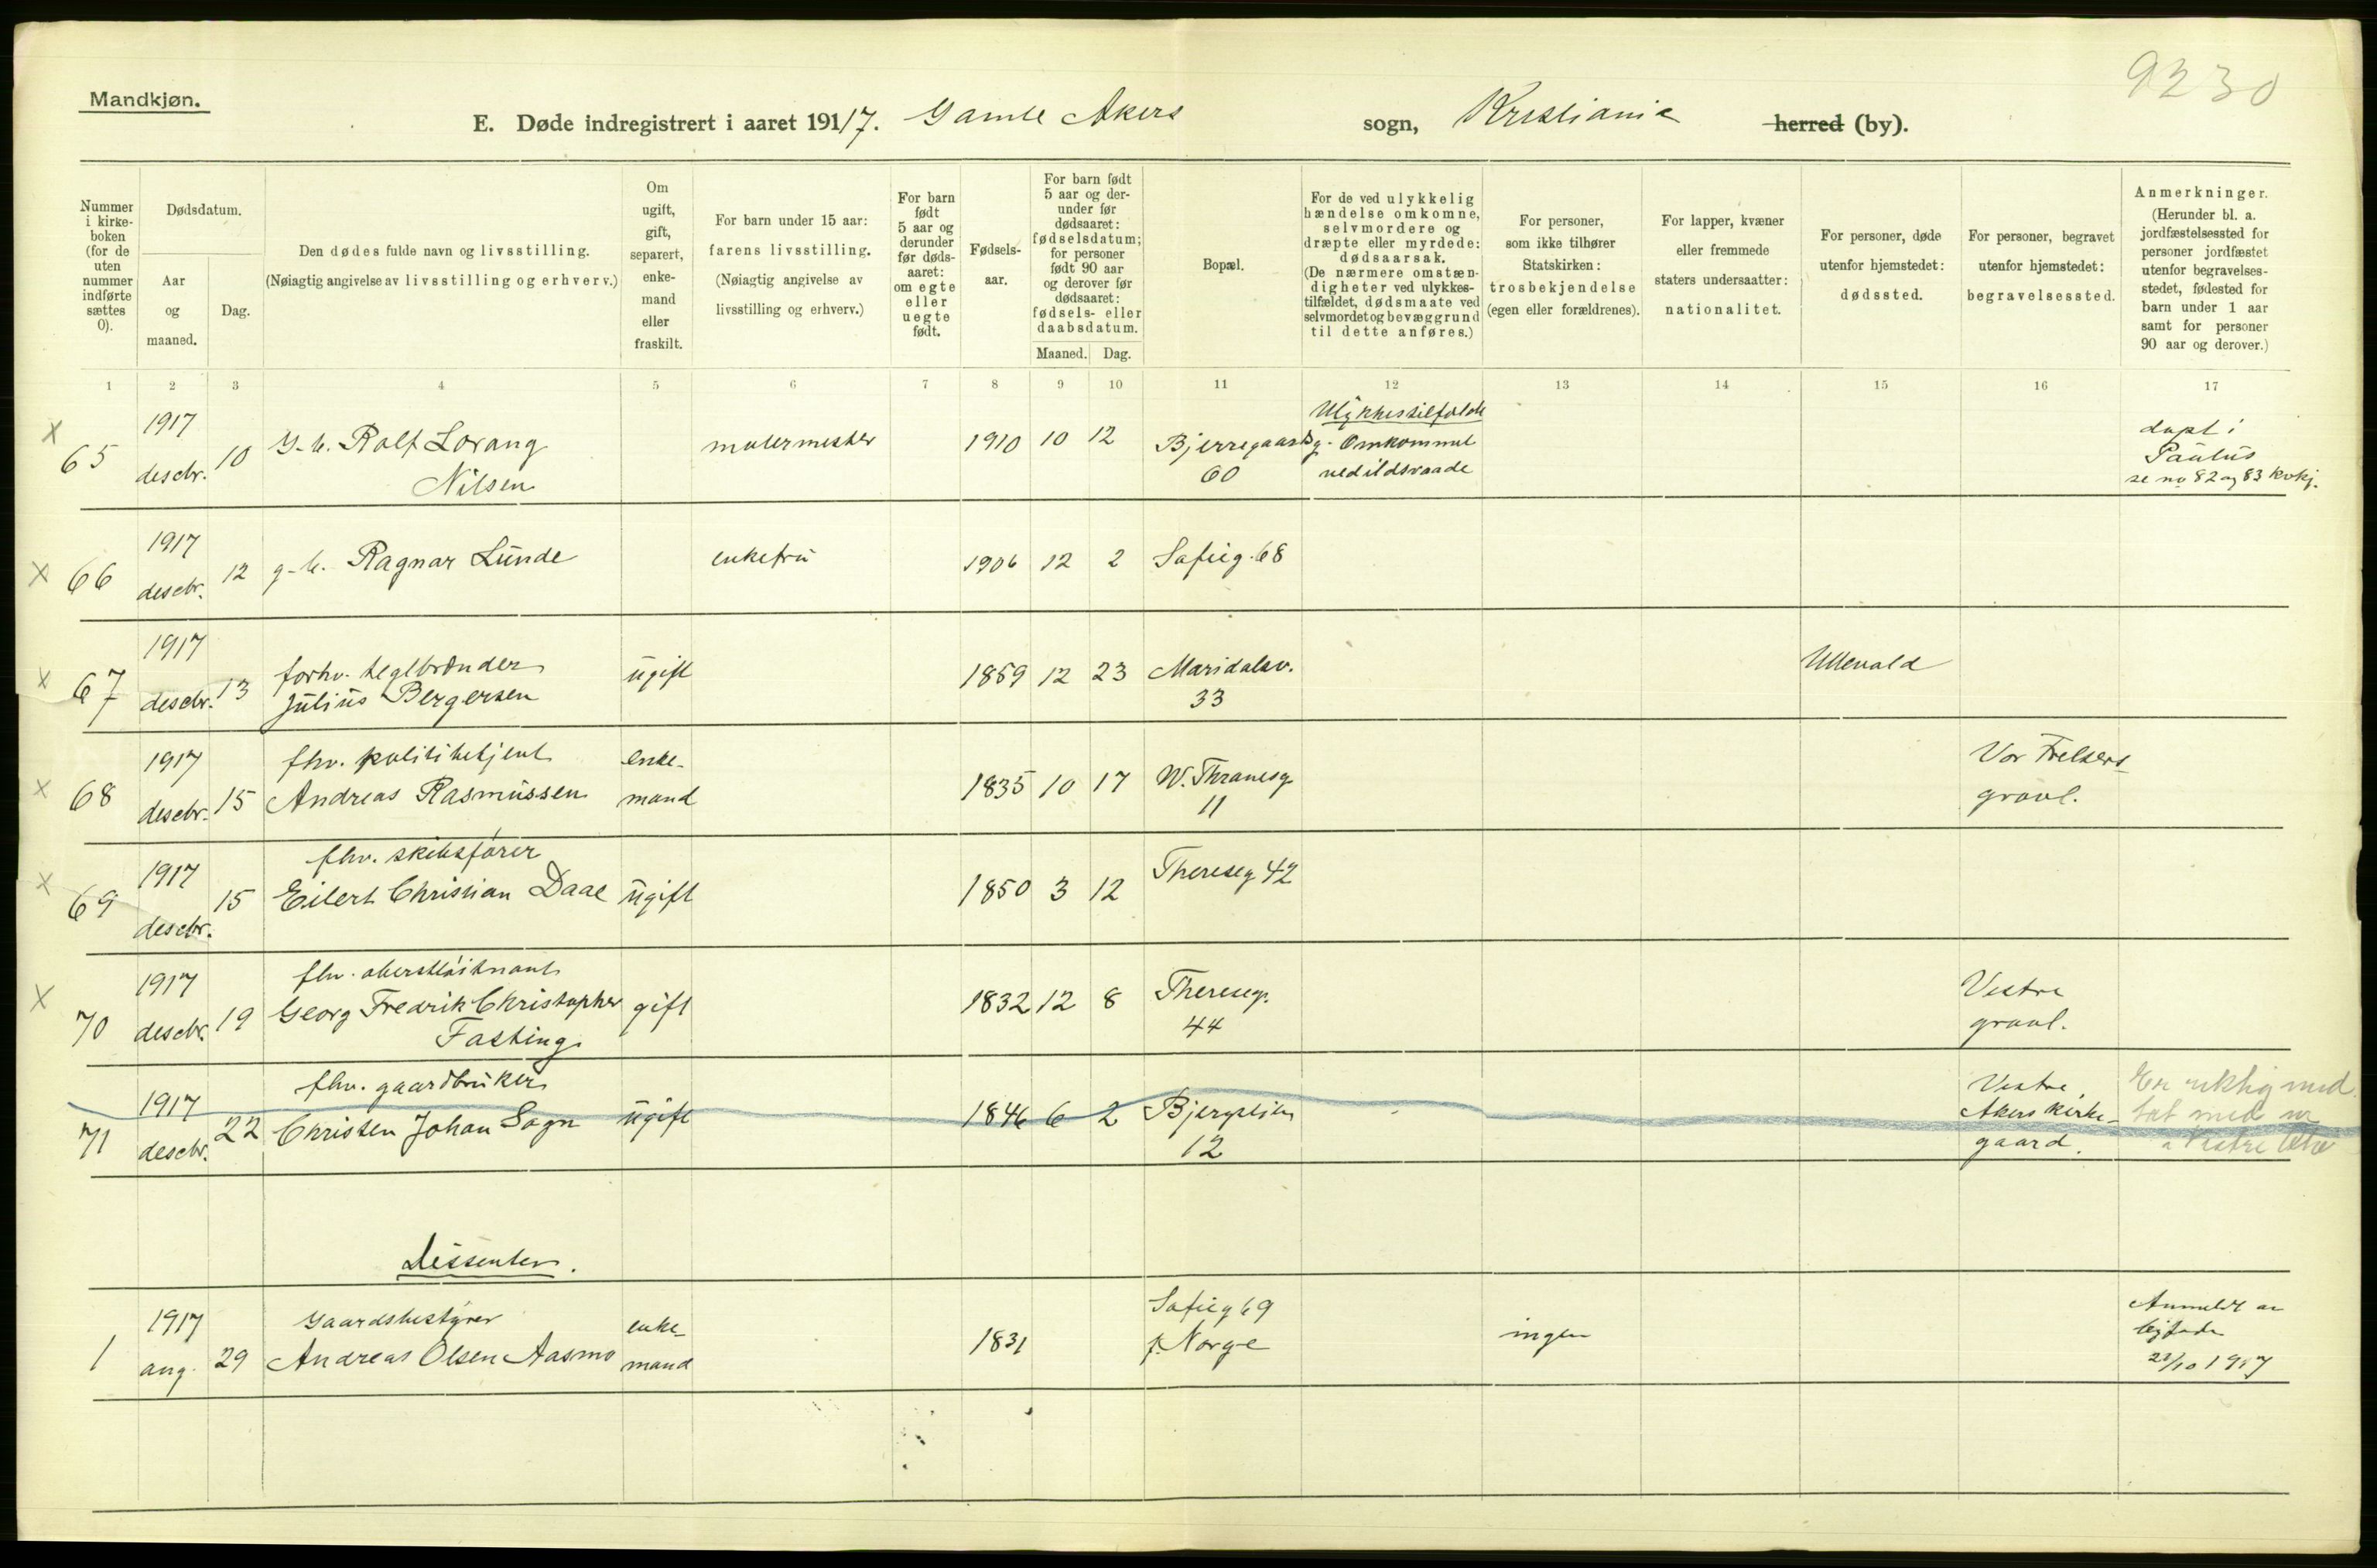 9230
Mandkjøn.
E. Døde indregistrert i aaret 1917. Gamle Akers sogn, Kristiania herred (by).
Nummer i kirke-boken (for de uten nummer indførte sættes 0).
Dødsdatum.
Aar og maaned.
Dag.
Den dødes fulde navn og livsstilling.
(Nøiagtig angivelse av livsstilling og erhverv.)
Om ugift, gift, separert, enke-mand eller fraskilt.
For barn under 15 aar:
farens livsstilling.
(Nøiagtig angivelse av livsstilling og erhverv.)
For barn født 5 aar og derunder før døds-aaret: om egte eller uegte født.
Fødsels-aar.
For barn født 5 aar og der-under før dødsaaret: fødselsdatum; for personer født 90 aar og derover før dødsaaret: fødsels- eller daabsdatum.
Maaned. Dag.
Bopæl.
For de ved ulykkelig hændelse omkomne, selvmordere og dræpte eller myrdede: dødsaarsak.
(De nærmere omstæn-digheter ved ulykkes-tilfældet, dødsmaate ved selvmordet og bevæggrund til dette anføres.)
For personer, som ikke tilhører Statskirken: trosbekjendelse (egen eller forældrenes).
For lapper, kvæner eller fremmede staters undersaatter: nationalitet.
For personer, døde utenfor hjemstedet: dødssted.
For personer, begravet utenfor hjemstedet: begravelsessted.
Anmerkninger.
(Herunder bl. a. jordfæstelsessted for personer jordfæstet utenfor begravelses-stedet, fødested for barn under 1 aar samt for personer 90 aar og derover.)
1 2 3 4 5 6 7 8 9 10 11 12 13 14 15 16 17
x 65 1917 descbr. 10 g.-b. Rolf Lorang Nilsen malermester 1910 10 12 Bjerregaardsg. 60 Ulykkestilfælde Omkommet ved ildsvaade døpt i Paulus se no 82 og 83 kvkj.
x 66 1917 descbr. 12 g-b. Ragnar Lunde enkefru 1906 12 2 Sofieg. 68
x 67 1917 descbr. 13 forhv. teglbrænder Julius Bergersen ugift 1859 12 23 Maridalsv. 33 Ullevold
x 68 1917 descbr. 15 fhv. politibetjent Andreas Rasmussen enke-mand 1835 10 17 W. Thranesg. 11 Vor Frelsers gravl.
x 69 1917 descbr. 15 fhv. skibsfører Eilert Christian Daae ugift 1850 3 12 Thereseg 42
x 70 1917 descbr. 19 fhv. oberstløitnant Georg Fredrik Christopher Fasting gift 1832 12 8 Thereseg. 44 Vestre gravl.
71 1917 descbr. 22 fhv. gaardbruker Christen Johan Sogn ugift 1846 6 2 Bjergstien 12 Vestre Akers kirke-gaard. Er riktig med
Dissenter.
1 1917 aug. 29 Gaardsbestyrer Andreas Olsen Aasmo enke-mand 1831 Sofieg 69 f. Norge ingen Anmeldt av 1917